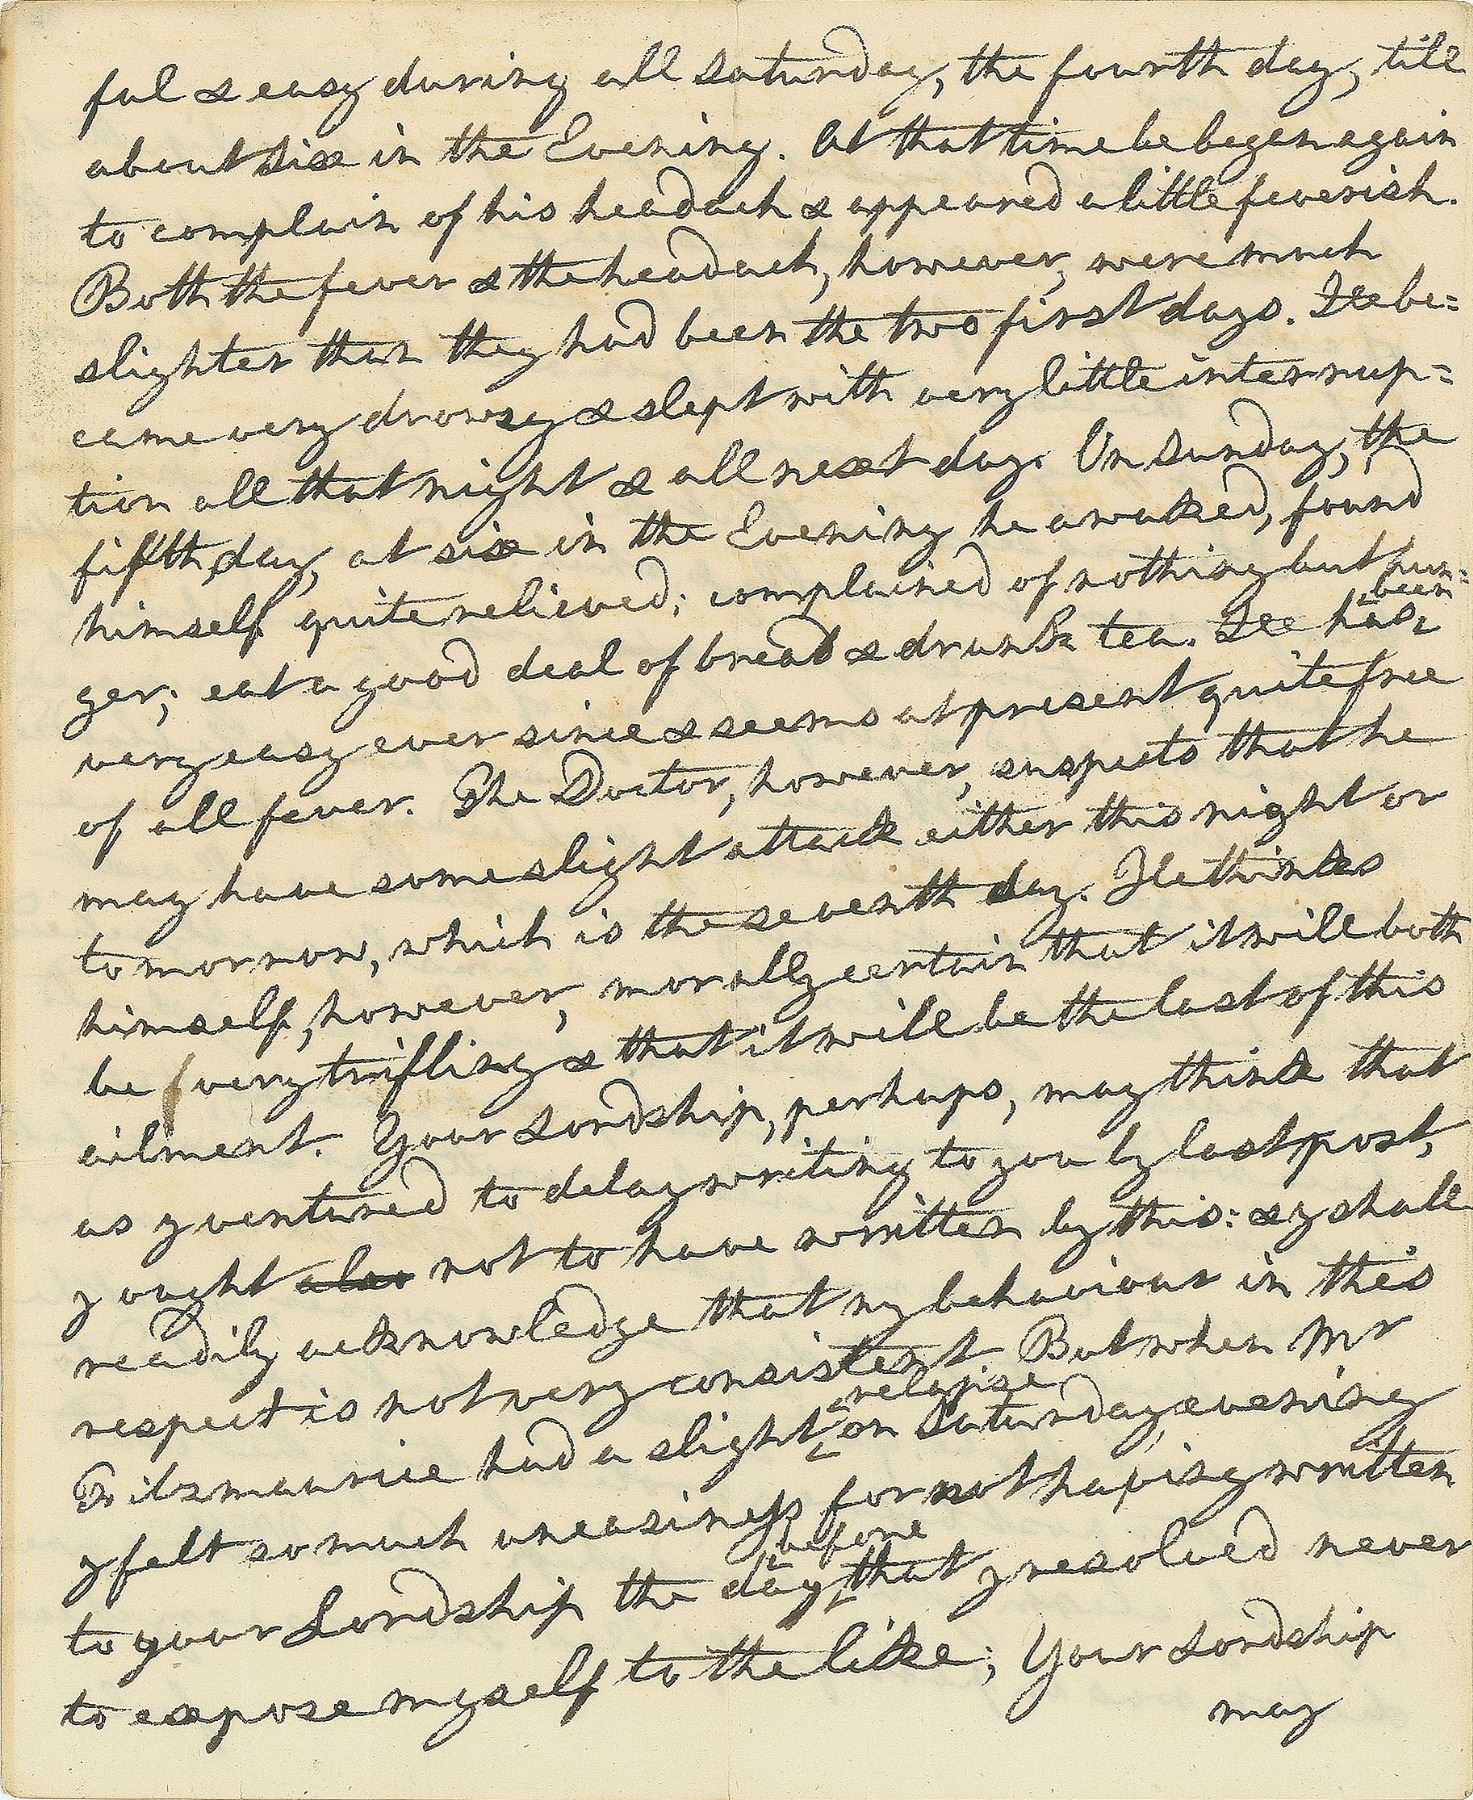 ful & easy during all Saturday, the fourth day, till
about six in the Evening. At that time he began again
to complain of his headach & appeared a little feverish.
Both the fever & the headach, however, were much
slighter than they had been the two first days. He be=
came very drowsy & slept with very little interrup=
tion all that night & all next day. On Sunday, the
fifth day, at six in the Evening he awaked, found
himself quite relieved; complained of nothing but hun=
ger; eat a good deal of bread & drunk tea. He has been
very easy ever since & seems at present quite free
of all fever. The Doctor, however, suspects that he
may have some slight attack either this night or
tomorrow, which is the seventh day. He thinks
himself, however, morally certain that it will both
be very trifling & that it will be the last of this
ailment. Your Lordship, perhaps, may think that
as I ventured to delay writing to you by last post,
I ought also not to have written by this: & I shall
readily acknowledge that my behaviour in this
respect is not very consistent. But when Mr
Fitzmaurice had a slight relapse on Saturday evening
I felt so much uneasiness for not having written
to your Lordship the day before that I resolved never
to expose myself to the like; Your Lordship
may